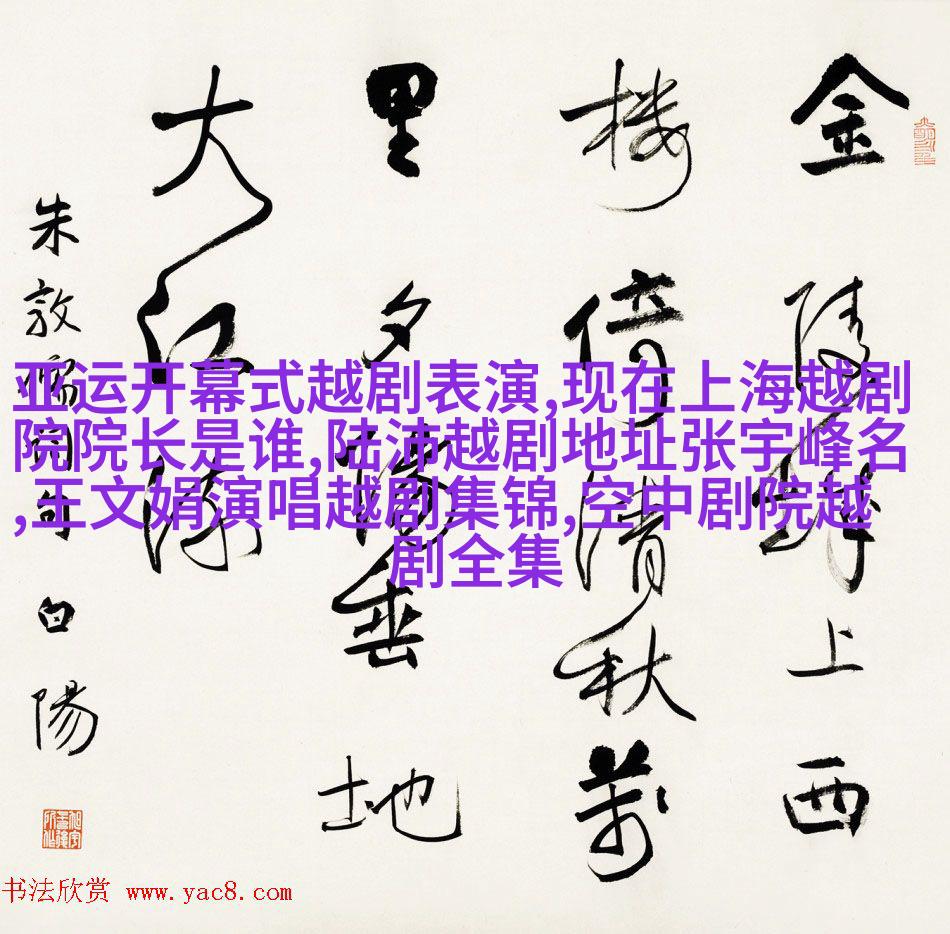 金陵城上西
樓倚清秋萬
里夕陽垂地
大江流
朱敦儒 白陽
亚运开幕式越剧表演,现在上海越剧
院院长是谁,陆沛越剧地址张宇峰名
,王文娟演唱越剧集锦,空中剧院越
剧全集
书法欣赏 www.yac8.com